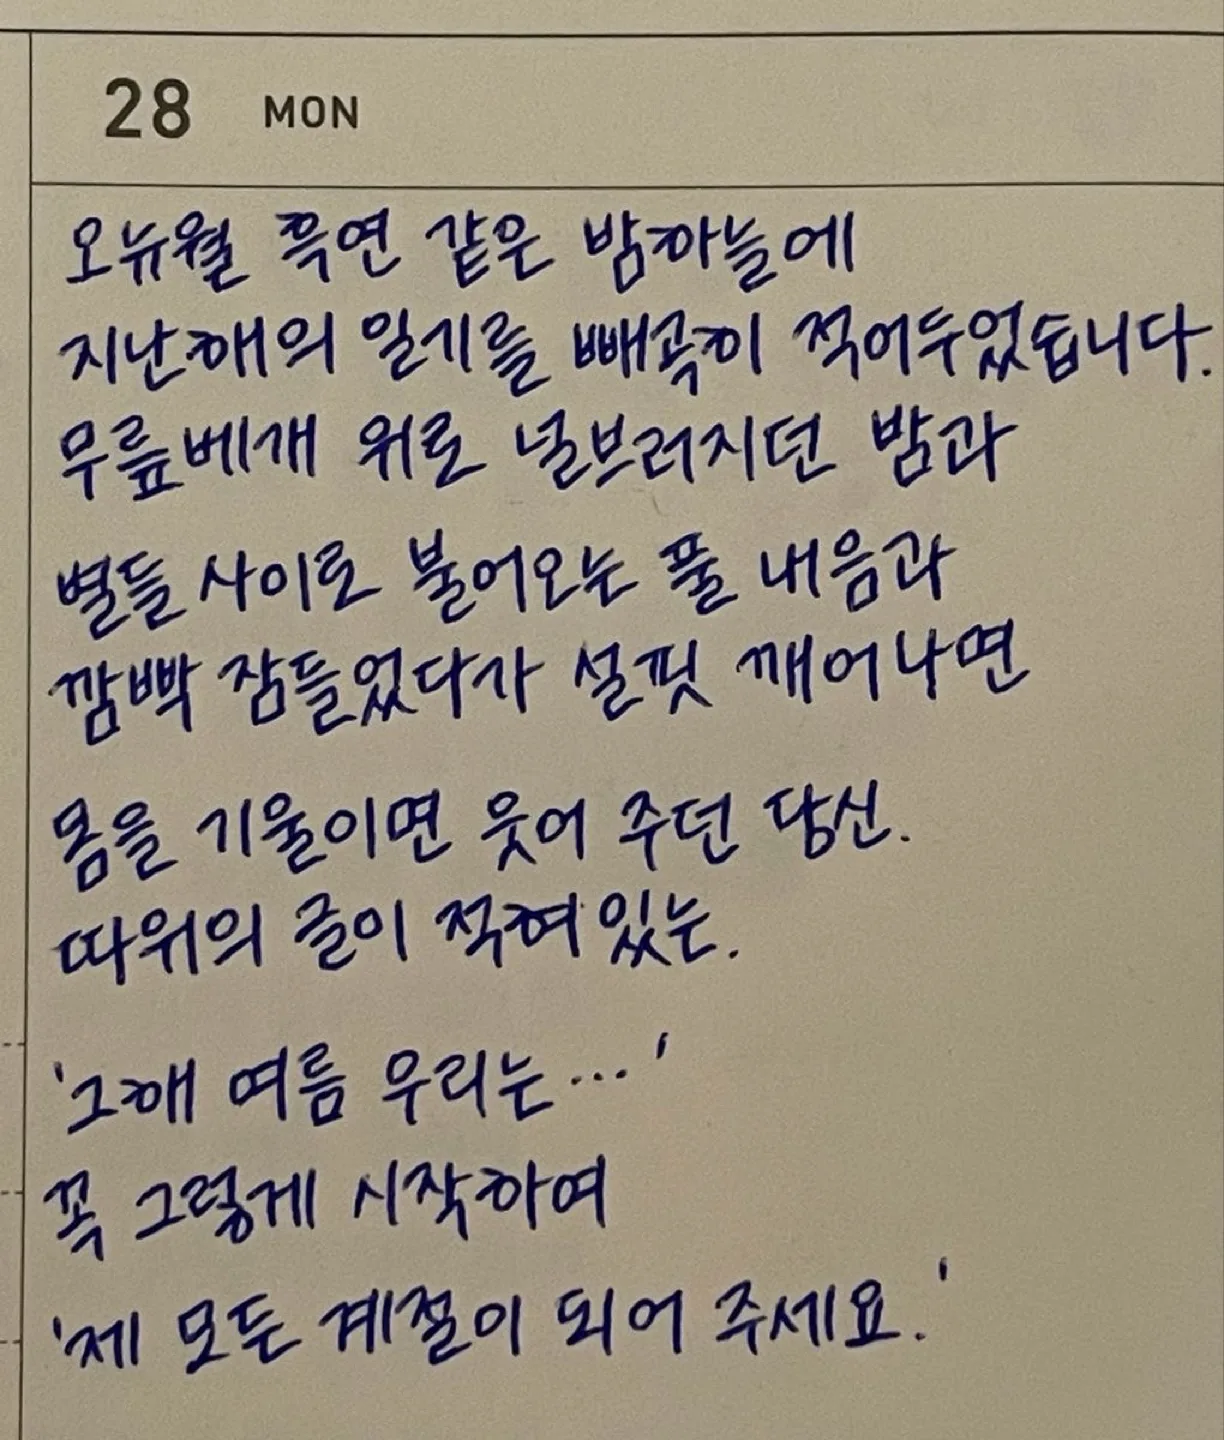 28 MON
오뉴월 흑연 같은 밤하늘에
지난해의 일기를 빼곡히 적어두었습니다.
무릎베개 위로 널브러지던 밤과
별들 사이로 불어오는 풀 내음과
깜빡 잠들었다가 설핏 깨어나면
몸을 기울이면 웃어 주던 당신.
따위의 글이 적혀있는.
'그해 여름 우리는...'
꼭 그렇게 시작하여
'제 모든 계절이 되어 주세요.'